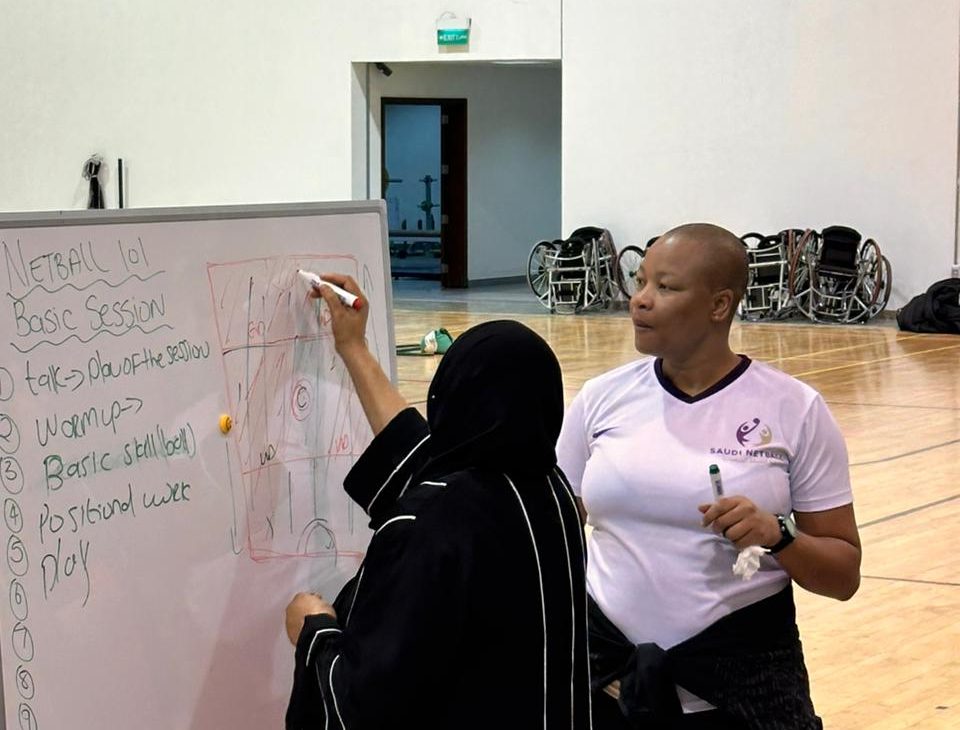 EXIT
NETBALL 101
Basic Session
1 talk → Plan of the session
2 Warm up →
3 Basic skill (ball)
4 Positional work
5 Play
6
7
8
9
C
WD
SAUDI NETBALL